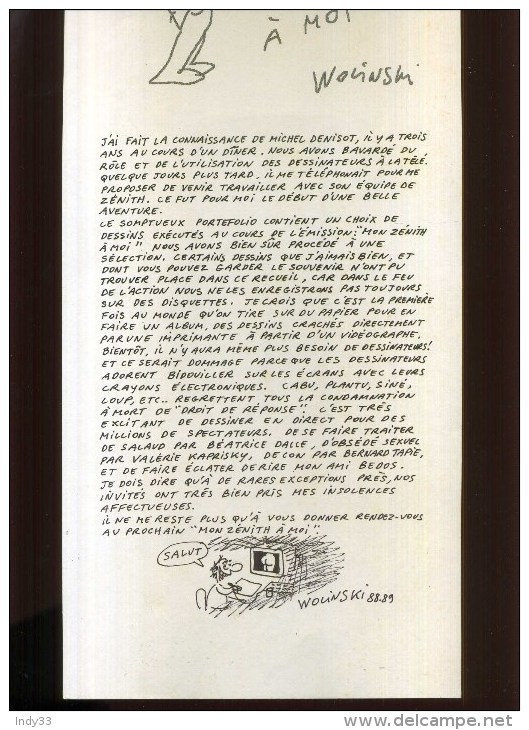 À MOI
WOLINSKI
J'AI FAIT LA CONNAISSANCE DE MICHEL DENISOT, IL Y A TROIS
ANS AU COURS D'UN DÎNER. NOUS AVONS BAVARDÉ DU
RÔLE ET DE L'UTILISATION DES DESSINATEURS À LA TÉLÉ.
QUELQUE JOURS PLUS TARD, IL ME TÉLÉPHONAIT POUR ME
PROPOSER DE VENIR TRAVAILLER AVEC SON ÉQUIPE DE
ZÉNITH. CE FUT POUR MOI LE DÉBUT D'UNE BELLE
AVENTURE.
CE SOMPTUEUX PORTEFOLIO CONTIENT UN CHOIX DE
DESSINS EXÉCUTÉS AU COURS DE L'ÉMISSION: "MON ZÉNITH
À MOI" NOUS AVONS BIEN SÛR PROCÉDÉ À UNE
SÉLECTION. CERTAINS DESSINS QUE J'AIMAIS BIEN, ET
DONT VOUS POUVEZ GARDER LE SOUVENIR N'ONT PU
TROUVER PLACE DANS CE RECUEIL, CAR DANS LE FEU
DE L'ACTION NOUS NE LES ENREGISTRONS PAS TOUJOURS
SUR DES DISQUETTES. JE CROIS QUE C'EST LA PREMIÈRE
FOIS AU MONDE QU'ON TIRE SUR DU PAPIER POUR EN
FAIRE UN ALBUM, DES DESSINS CRACHÉS DIRECTEMENT
PAR UNE IMPRIMANTE À PARTIR D'UN VIDÉOGRAPHE.
BIENTÔT, IL N'Y AURA MÊME PLUS BESOIN DE DESSINATEURS!
ET CE SERAIT DOMMAGE PARCE QUE LES DESSINATEURS
ADORENT BIDOUILLER SUR LES ÉCRANS AVEC LEURS
CRAYONS ÉLECTRONIQUES. CABU, PLANTU, SINÉ,
LOUP, ETC.. REGRETTENT TOUS LA CONDAMNATION
À MORT DE "DROIT DE RÉPONSE". C'EST TRÈS
EXCITANT DE DESSINER EN DIRECT POUR DES
MILLIONS DE SPECTATEURS. DE SE FAIRE TRAITER
DE SALAUD PAR BÉATRICE DALLE, D'OBSÉDÉ SEXUEL
PAR VALÉRIE KAPRISKY, DE CON PAR BERNARD TAPIE,
ET DE FAIRE ÉCLATER DE RIRE MON AMI BEDOS.
JE DOIS DIRE QU'À DE RARES EXCEPTIONS PRÈS, NOS
INVITÉS ONT TRÈS BIEN PRIS MES INSOLENCES
AFFECTUEUSES.
IL NE ME RESTE PLUS QU'À VOUS DONNER RENDEZ-VOUS
AU PROCHAIN "MON ZÉNITH À MOI".
SALUT
WOLINSKI 88.89
Indy33
delcampe.net